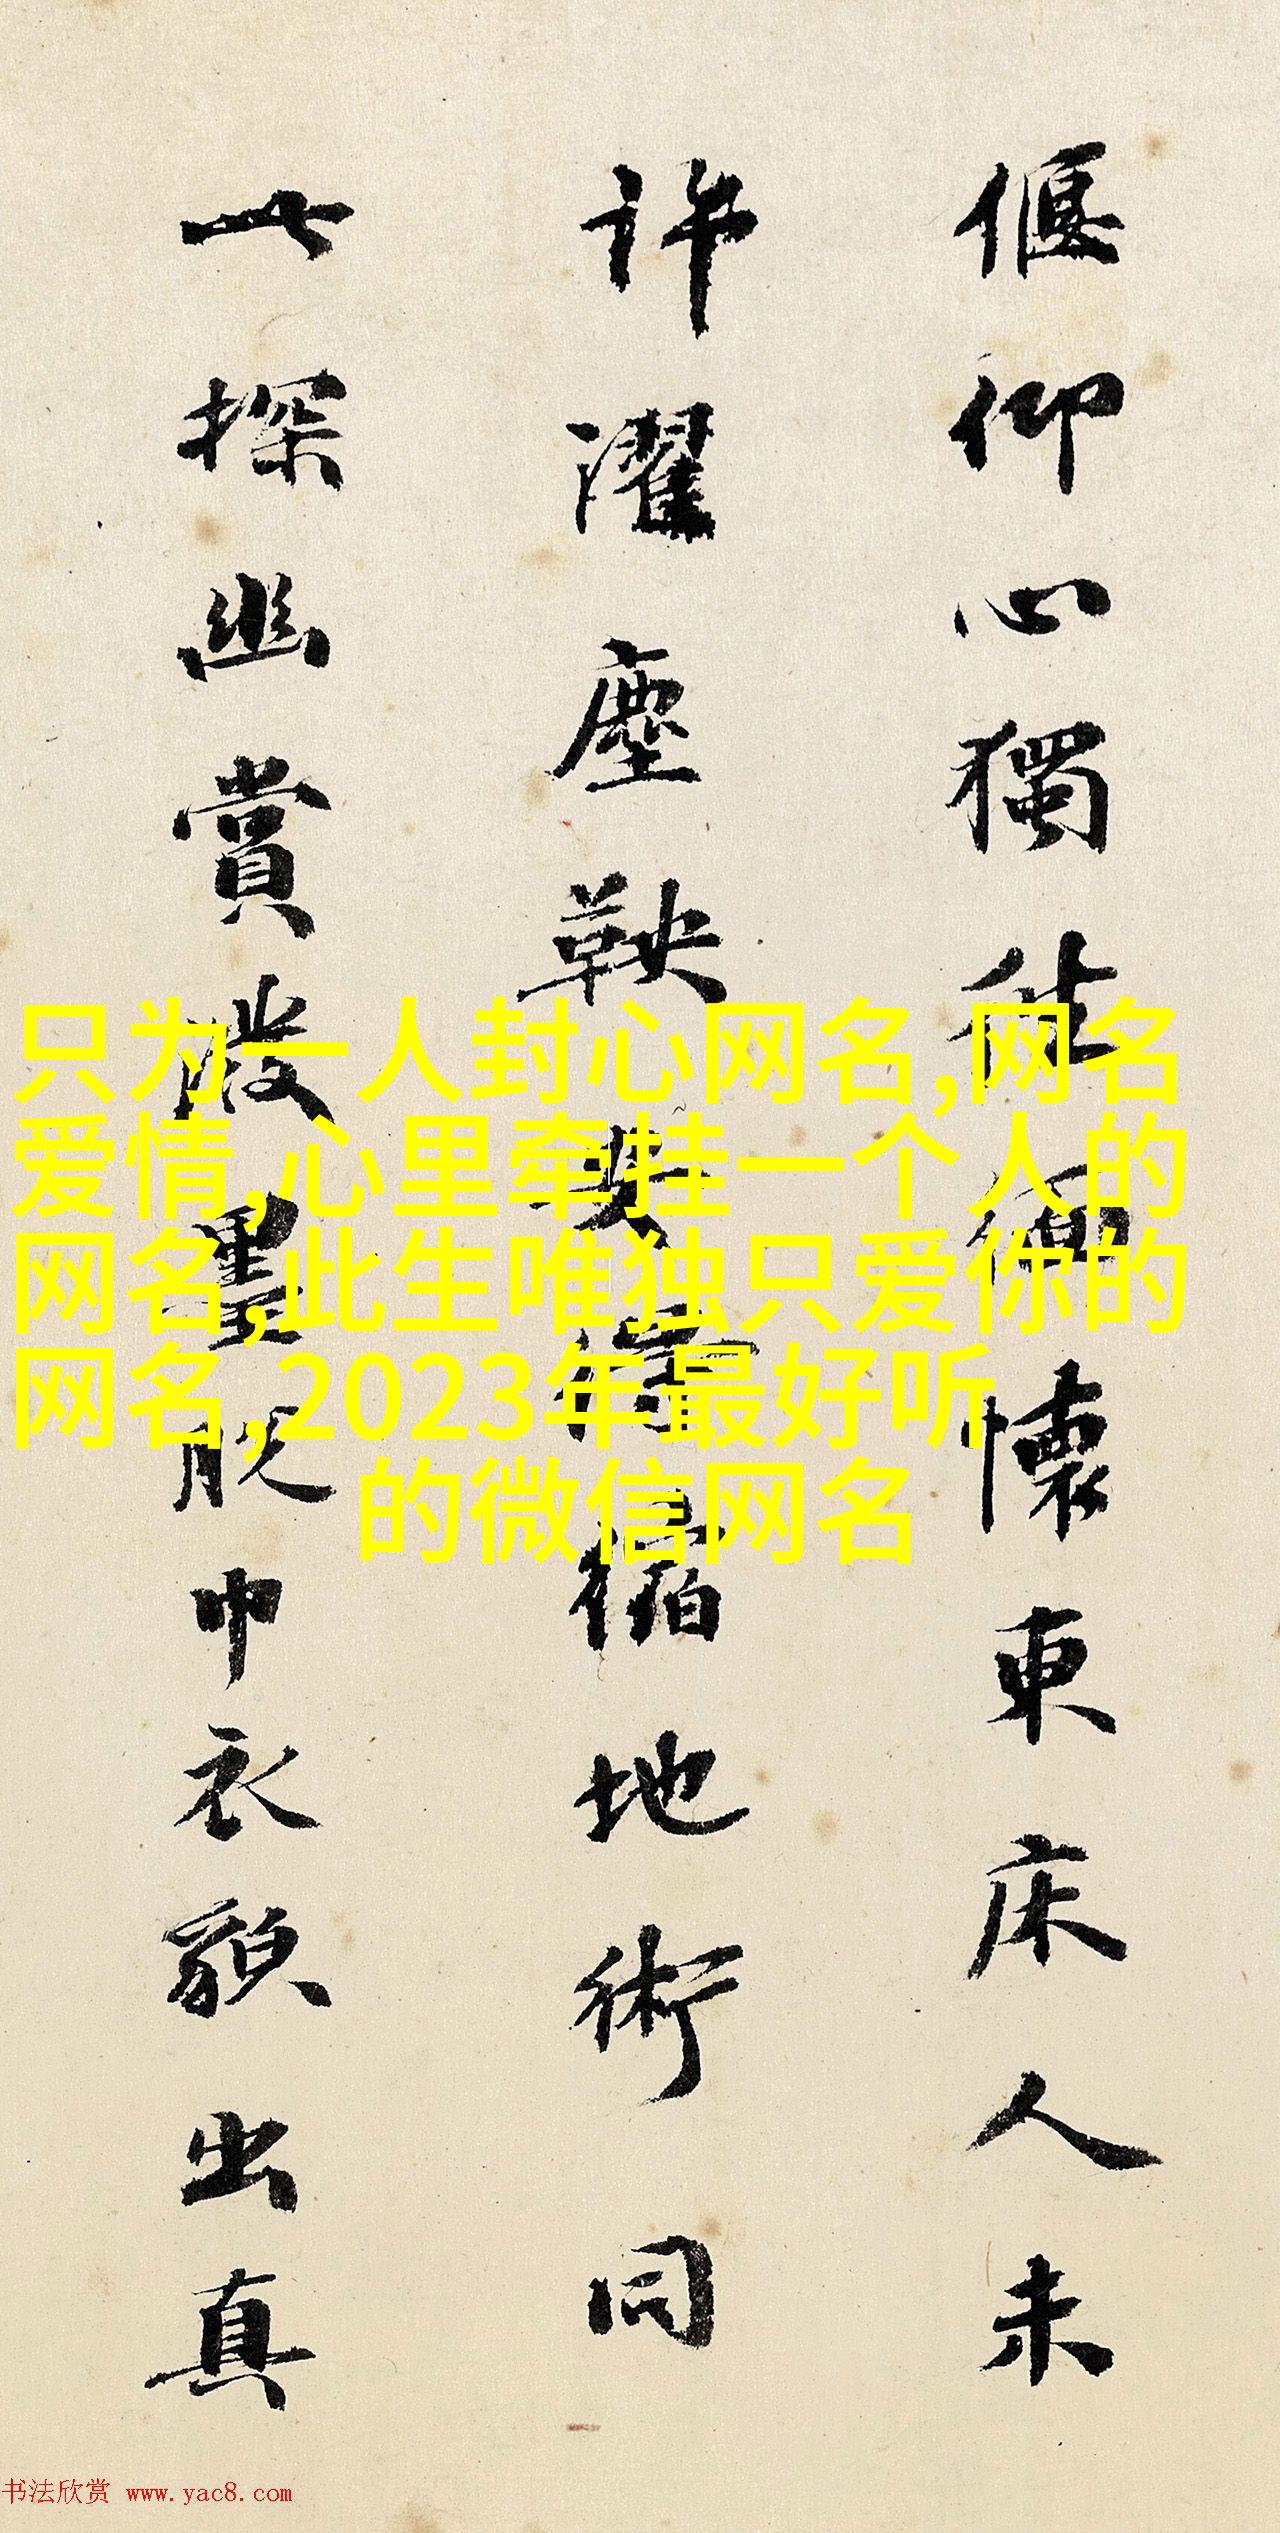 偃仰心獨往緬懷東床人未
許濯塵鞅得縮地術同
探幽賞墨脫巾衣貌出真
只为一人封心网名,网名
爱情,心里牵挂一个人的
网名,此生唯独只爱你的
网名,2023年最好听
的微信网名
书法欣赏 www.yac8.com